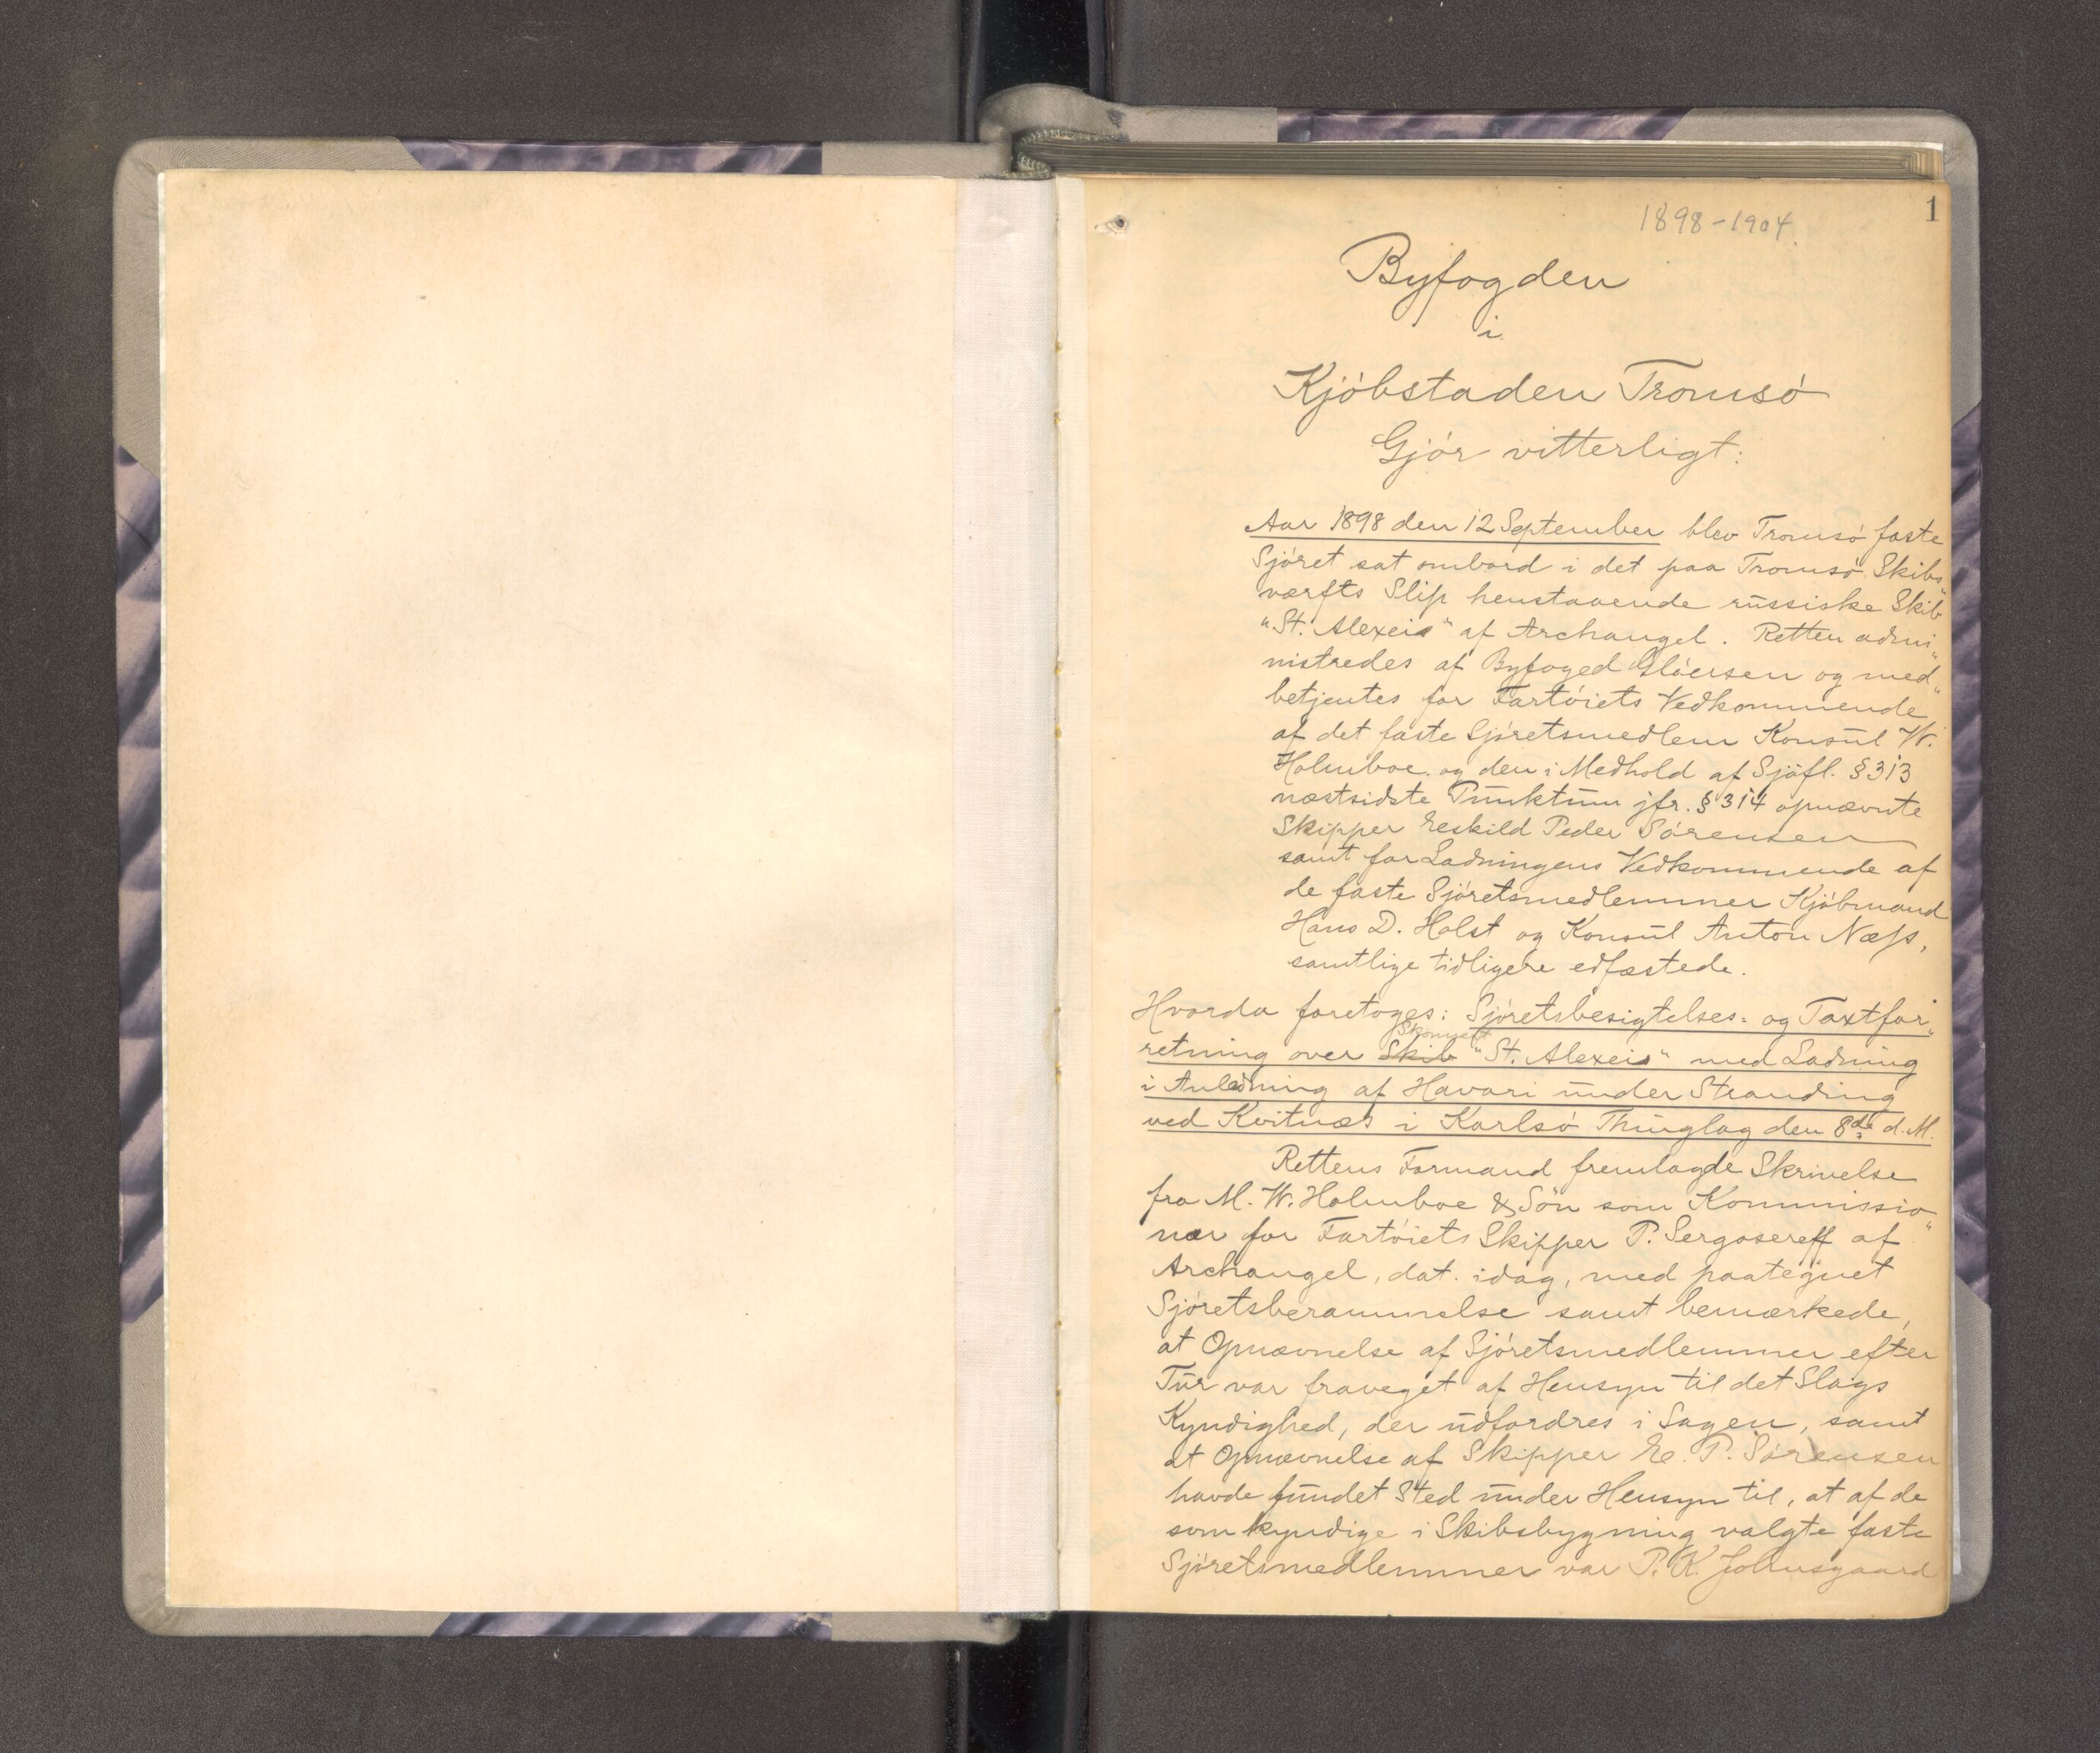 1898-1904.
1
Byfogden
i
Kjöbstaden Tromsö
Gjör vitterligt:
Aar 1898 den 12 September blev Tromsö faste
Sjöret sat ombord i det paa Tromsö Skibs„
værfts Slip henstaaende russiske Skib
"St. Alexeis" af Archangel. Retten admi„
nistredes af Byfoged Gløersen og med„
betjentes for Fartöiets Vedkommende
af det faste Sjöretsmedlem Konsul W.
Holmboe og den i Medhold af Sjöfl. § 313
næstsidste Punktum jfr. § 314 opnævnte
Skipper Eeskild Peder Sörensen
samt for Ladningens Vedkommende af
de faste Sjöretsmedlemmer Kjöbmand
Hans D. Holst og Konsul Anton Næss,
samtlige tidligere edfæstede.
Hvorda foretoges: Sjöretsbesigtelses- og Taxtfor„
Skonnert
retning over Skib "St. Alexeis" med Ladning
i Anledning af Havari under Stranding
ved Kvitnæs i Karlsö Thinglag den 8de d. M.
Rettens Formand fremlagde Skrivelse
fra M. W. Holmboe & Sön som Kommissio„
nær for Fartöiets Skipper P. Sergasereff af
Archangel, dat. idag, med paategnet
Sjöretsberammelse samt bemærkede,
at Opnævnelse af Sjöretsmedlemmer efter
Tur var fraveget af Hensyn til det Slags
Kyndighed, der udfordres i Sagen, samt
at Opnævnelse af Skipper E. P. Sörensen
havde fundet Sted under Hensyn til, at af de
som kyndige i Skibsbygning valgte faste
Sjöretsmedlemmer var P. K. Johnsgaard